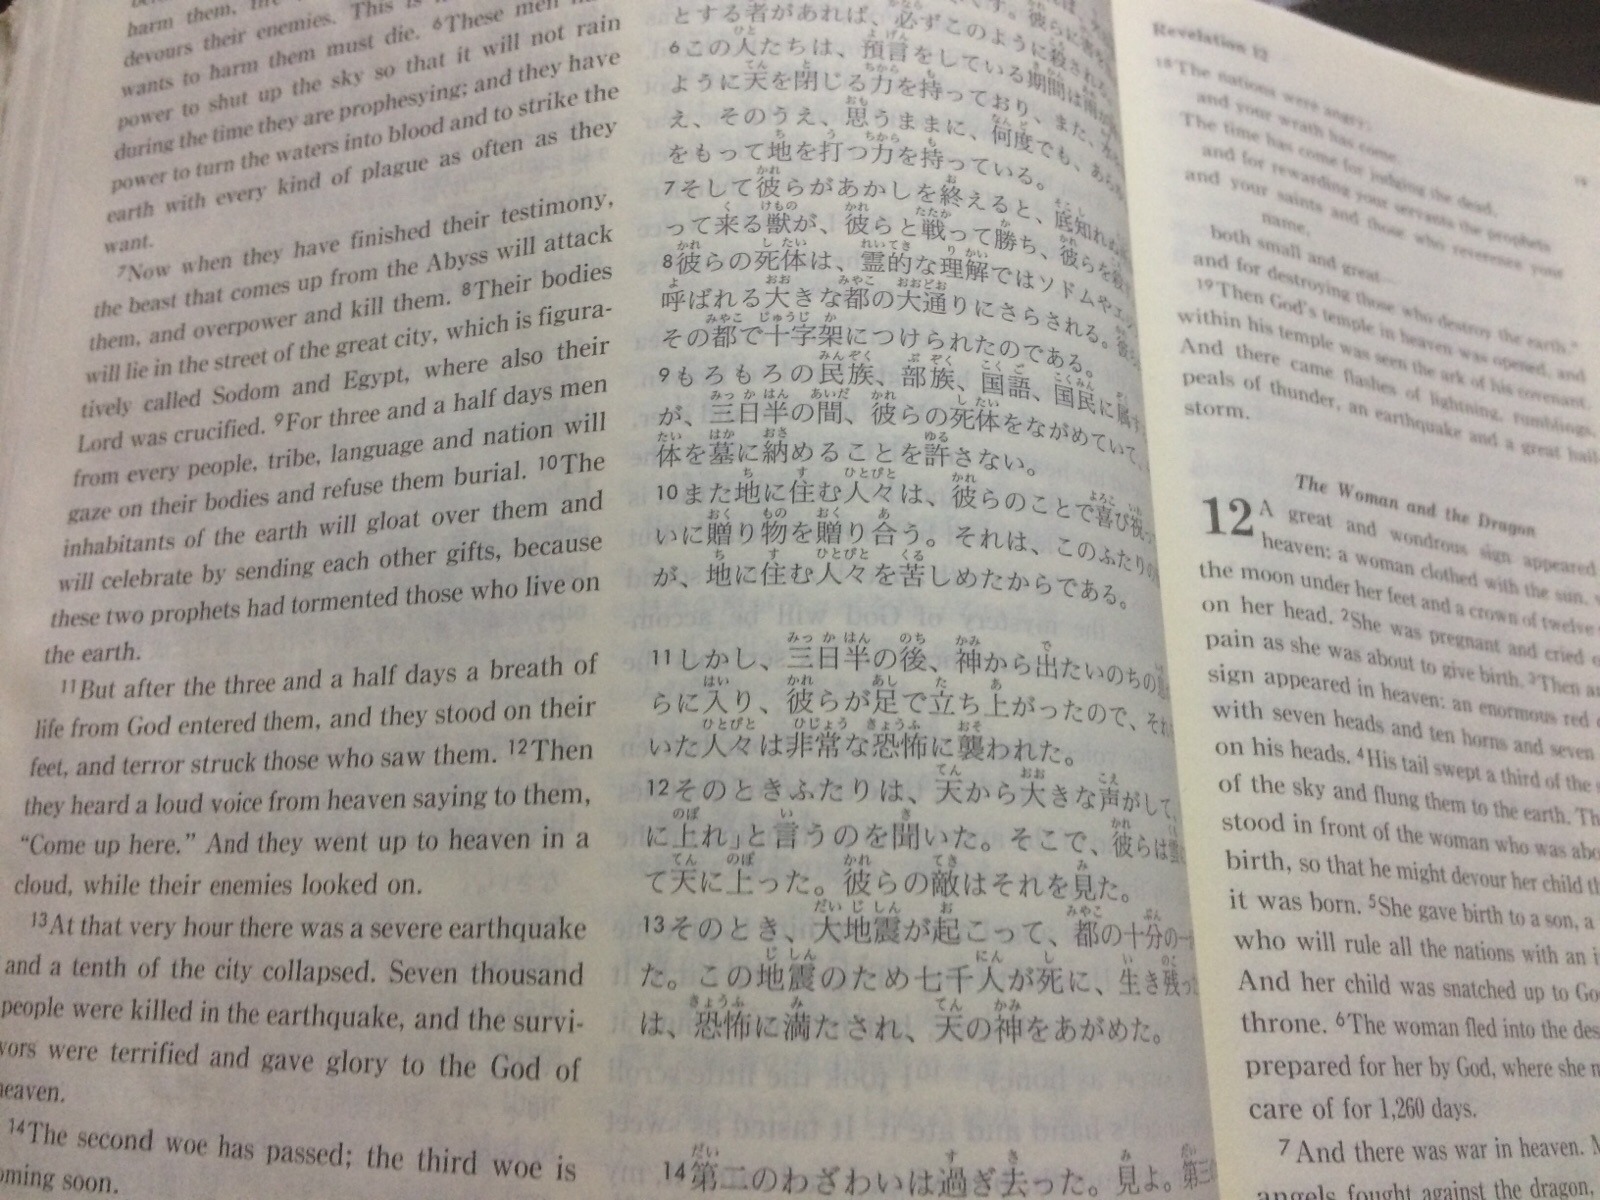 harm them,
devours their enemies. This is
wants to harm them must die. 6These men
power to shut up the sky so that it will not rain
during the time they are prophesying; and they have
power to turn the waters into blood and to strike the
earth with every kind of plague as often as they
want.
7Now when they have finished their testimony,
the beast that comes up from the Abyss will attack
them, and overpower and kill them. 8Their bodies
will lie in the street of the great city, which is figura-
tively called Sodom and Egypt, where also their
Lord was crucified. 9For three and a half days men
from every people, tribe, language and nation will
gaze on their bodies and refuse them burial. 10The
inhabitants of the earth will gloat over them and
will celebrate by sending each other gifts, because
these two prophets had tormented those who live on
the earth.
11But after the three and a half days a breath of
life from God entered them, and they stood on their
feet, and terror struck those who saw them. 12Then
they heard a loud voice from heaven saying to them,
“Come up here.” And they went up to heaven in a
cloud, while their enemies looked on.
13At that very hour there was a severe earthquake
and a tenth of the city collapsed. Seven thousand
people were killed in the earthquake, and the survi-
vors were terrified and gave glory to the God of
heaven.
14The second woe has passed; the third woe is
oming soon.
とする者があれば、必ずこのように殺される。
6この人たちは、預言をしている期間は
ように天を閉じる力を持っており、また、
え、そのうえ、思うままに、何度でも、あら
をもって地を打つ力を持っている。
7そして彼らがあかしを終えると、底知れ
って来る獣が、彼らと戦って勝ち、彼らを
8彼らの死体は、霊的な理解ではソドムや
呼ばれる大きな都の大通りにさらされる。
その都で十字架につけられたのである。
9もろもろの民族、部族、国語、国民に属
が、三日半の間、彼らの死体をながめていて、
体を墓に納めることを許さない。
10また地に住む人々は、彼らのことで喜び祝
いに贈り物を贈り合う。それは、このふたりの
が、地に住む人々を苦しめたからである。
11しかし、三日半の後、神から出たいのちの
らに入り、彼らが足で立ち上がったので、それ
いた人々は非常な恐怖に襲われた。
12そのときふたりは、天から大きな声がして、
に上れ」と言うのを聞いた。そこで、彼らは
て天に上った。彼らの敵はそれを見た。
13そのとき、大地震が起こって、都の十分の一
た。この地震のため七千人が死に、生き残っ
は、恐怖に満たされ、天の神をあがめた。
14第二のわざわいは過ぎ去った。見よ。第三
Revelation 12
18The nations were angry;
and your wrath has come.
The time has come for judging the dead,
and for rewarding your servants the prophets
and your saints and those who reverence your
name,
both small and great—
and for destroying those who destroy the earth.”
19Then God's temple in heaven was opened, and
within his temple was seen the ark of his covenant.
And there came flashes of lightning, rumblings,
peals of thunder, an earthquake and a great hail-
storm.
The Woman and the Dragon
12 A great and wondrous sign appeared
heaven: a woman clothed with the sun,
the moon under her feet and a crown of twelve
on her head. 2She was pregnant and cried
pain as she was about to give birth. 3Then
sign appeared in heaven: an enormous red
with seven heads and ten horns and seven
on his heads. 4His tail swept a third of the
of the sky and flung them to the earth. Th
stood in front of the woman who was abo
birth, so that he might devour her child th
it was born. 5She gave birth to a son, a
who will rule all the nations with an i
And her child was snatched up to Go
throne. 6The woman fled into the des
prepared for her by God, where she m
care of for 1,260 days.
7And there was war in heaven. M
angels fought against the dragon,